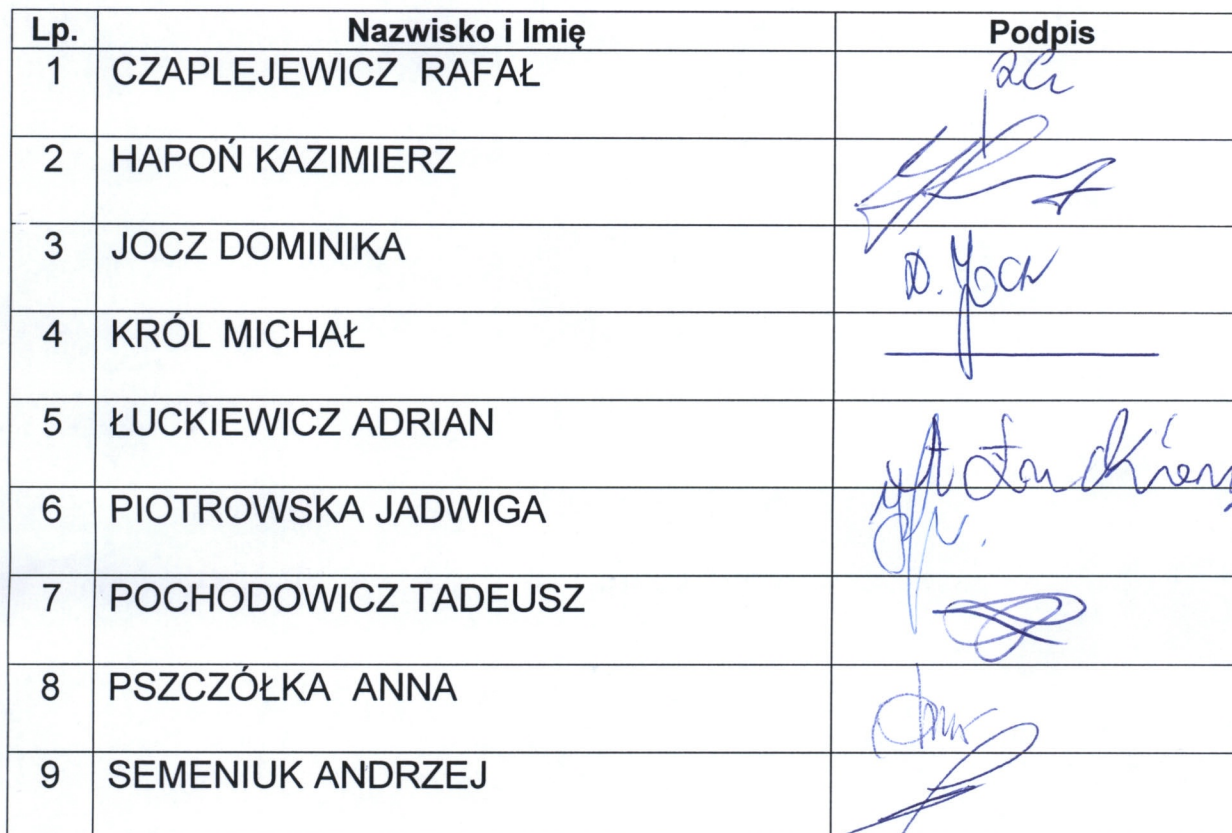 Lp. Nazwisko i Imię Podpis
1 CZAPLEJEWICZ RAFAŁ
2 HAPOŃ KAZIMIERZ
3 JOCZ DOMINIKA D. Jocz
4 KRÓL MICHAŁ
5 ŁUCKIEWICZ ADRIAN
6 PIOTROWSKA JADWIGA
7 POCHODOWICZ TADEUSZ
8 PSZCZÓŁKA ANNA
9 SEMENIUK ANDRZEJ